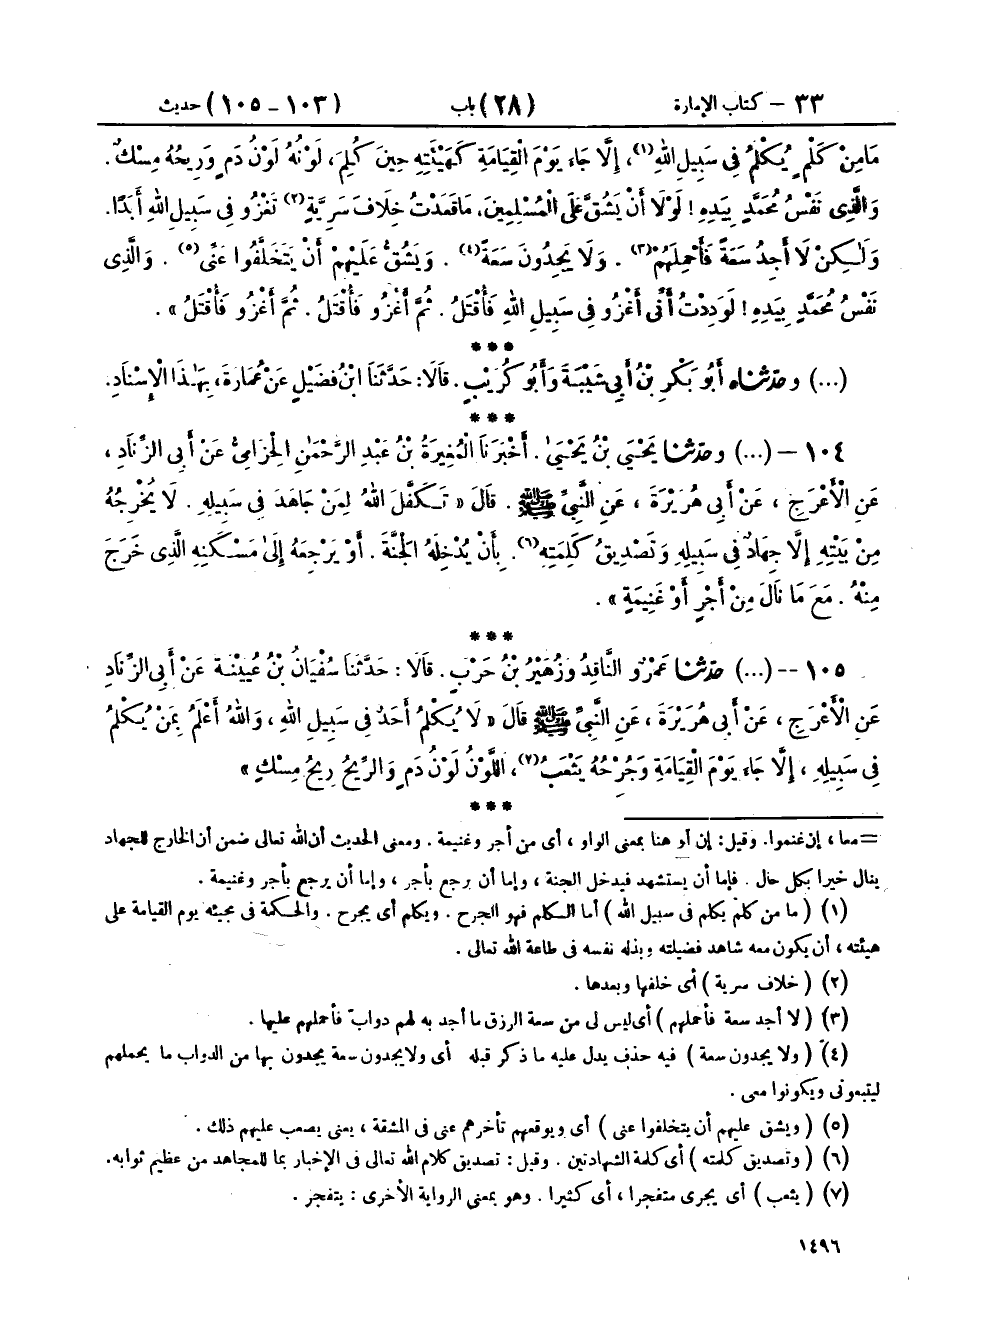 ٣٣ – كتاب الإمارة (٢٨) باب (١٠٣ – ١٠٥) حديث
مَا مِنْ كَلْمٍ يُكْلَمُ فِى سَبِيلِ اللهِ(١)، إِلَّا جَاءَ يَوْمَ الْقِيَامَةِ كَهَيْئَتِهِ حِينَ كُلِمَ، لَوْنُهُ لَوْنُ دَمٍ وَرِيحُهُ مِسْكٌ.
وَالَّذِى نَفْسُ مُحَمَّدٍ بِيَدِهِ! لَوْلَا أَنْ يَشُقَّ عَلَى الْمُسْلِمِينَ، مَا قَعَدْتُ خِلَافَ سَرِيَّةٍ(٢) تَغْزُو فِى سَبِيلِ اللهِ أَبَدًا.
وَلَٰكِنْ لَا أَجِدُ سَعَةً فَأَحْمِلَهُمْ(٣). وَلَا يَجِدُونَ سَعَةً(٤). وَيَشُقُّ عَلَيْهِمْ أَنْ يَتَخَلَّفُوا عَنِّى(٥). وَالَّذِى
نَفْسُ مُحَمَّدٍ بِيَدِهِ! لَوَدِدْتُ أَنِّى أَغْزُو فِى سَبِيلِ اللهِ فَأُقْتَلُ. ثُمَّ أَغْزُو فَأُقْتَلُ. ثُمَّ أَغْزُو فَأُقْتَلُ».
***
(...) وحَدَّثَنَاه أَبُو بَكْرِ بْنُ أَبِى شَيْبَةَ وَأَبُو كُرَيْبٍ. قَالَا: حَدَّثَنَا ابْنُ فُضَيْلٍ عَنْ عُمَارَةَ، بِهَٰذَا الْإِسْنَادِ.
***
١٠٤ – (...) وحَدَّثَنَا يَحْيَى بْنُ يَحْيَىٰ. أَخْبَرَنَا الْمُغِيرَةُ بْنُ عَبْدِ الرَّحْمَٰنِ الْحِزَامِىُّ عَنْ أَبِى الزِّنَادِ،
عَنِ الْأَعْرَجِ، عَنْ أَبِى هُرَيْرَةَ، عَنِ النَّبِىِّ ﷺ. قَالَ «تَكَفَّلَ اللهُ لِمَنْ جَاهَدَ فِى سَبِيلِهِ. لَا يُخْرِجُهُ
مِنْ بَيْتِهِ إِلَّا جِهَادٌ فِى سَبِيلِهِ وَتَصْدِيقُ كَلِمَتِهِ(٦). بِأَنْ يُدْخِلَهُ الْجَنَّةَ. أَوْ يَرْجِعَهُ إِلَىٰ مَسْكَنِهِ الَّذِى خَرَجَ
مِنْهُ. مَعَ مَا نَالَ مِنْ أَجْرٍ أَوْ غَنِيمَةٍ».
***
١٠٥ – (...) حَدَّثَنَا عَمْرٌو النَّاقِدُ وَزُهَيْرُ بْنُ حَرْبٍ. قَالَا: حَدَّثَنَا سُفْيَانُ بْنُ عُيَيْنَةَ عَنْ أَبِى الزِّنَادِ
عَنِ الْأَعْرَجِ، عَنْ أَبِى هُرَيْرَةَ، عَنِ النَّبِىِّ ﷺ قَالَ «لَا يُكْلَمُ أَحَدٌ فِى سَبِيلِ اللهِ، وَاللهُ أَعْلَمُ بِمَنْ يُكْلَمُ
فِى سَبِيلِهِ، إِلَّا جَاءَ يَوْمَ الْقِيَامَةِ وَجُرْحُهُ يَثْعَبُ(٧)، اللَّوْنُ لَوْنُ دَمٍ وَالرِّيحُ رِيحُ مِسْكٍ»
***
= معا، إن غنموا. وقيل: إن أو هنا بمعنى الواو، أى من أجر وغنيمة. ومعنى الحديث أن الله تعالى ضمن أن الخارج للجهاد
ينال خيرا بكل حال. فإما أن يستشهد فيدخل الجنة، وإما أن يرجع بأجر، وإما أن يرجع بأجر وغنيمة.
(١) (ما من كلم يكلم فى سبيل الله) أما الكلم فهو الجرح. ويكلم أى يجرح. والحكمة فى مجيئه يوم القيامة على
هيئته، أن يكون معه شاهد فضيلته وبذله نفسه فى طاعة الله تعالى.
(٢) (خلاف سرية) أى خلفها وبعدها.
(٣) (لا أجد سعة فأحملهم) أى ليس لى من سعة الرزق ما أجد به لهم دوابّ فأحملهم عليها.
(٤) (ولا يجدون سعة) فيه حذف يدل عليه ما ذكر قبله أى ولا يجدون سعة يجدون بها من الدواب ما يحملهم
ليتبعونى ويكونوا معى.
(٥) (ويشق عليهم أن يتخلفوا عنى) أى ويوقعهم تأخرهم عنى فى المشقة، يعنى يصعب عليهم ذلك.
(٦) (وتصديق كلمته) أى كلمة الشهادتين. وقيل: تصديق كلام الله تعالى فى الإخبار بما للمجاهد من عظيم ثوابه.
(٧) (يثعب) أى يجرى متفجرا، أى كثيرا. وهو بمعنى الرواية الأخرى: يتفجر.
١٤٩٦